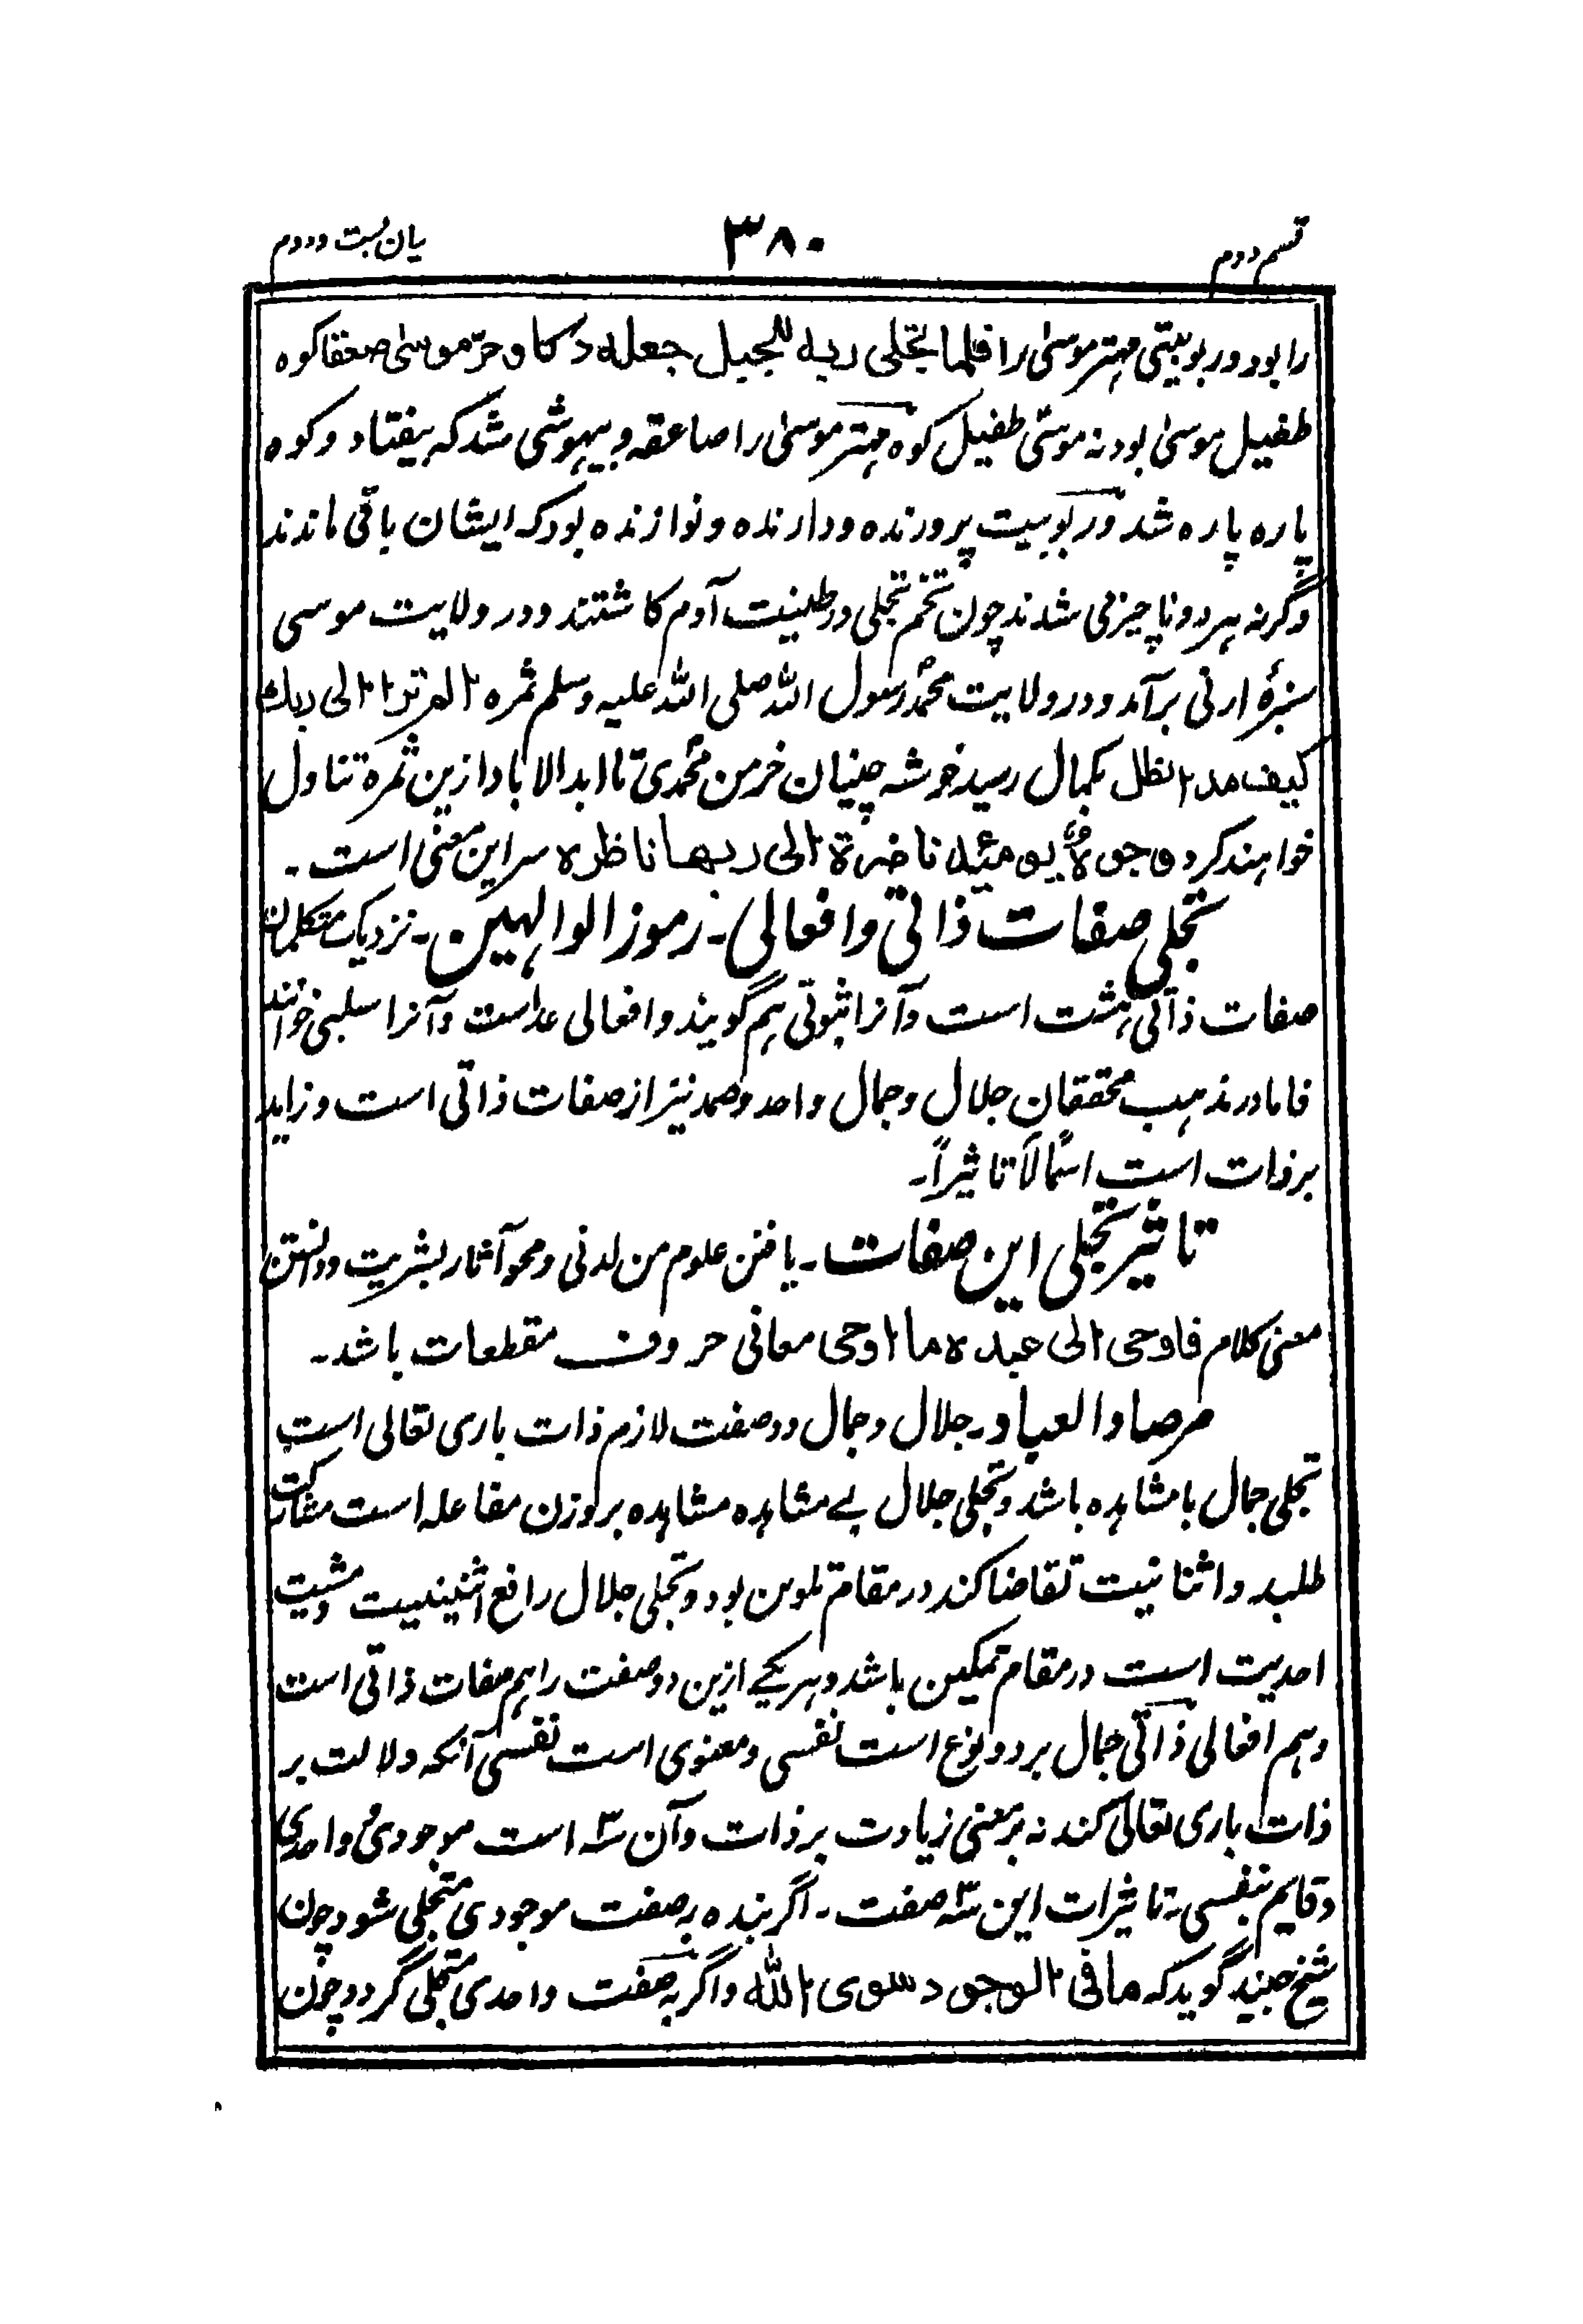 قسم دوم ۳۸۰ بیان بست و دوم
را بود و ربوبیتی مہتر موسیٰ را فلما تجلی ربہ للجبل جعلہ دکا و خرّ موسیٰ صعقا کوہ
طفیل موسیٰ بود نہ موسیٰ طفیل کوہ مہتر موسیٰ را صاعقہ و بیہوشی شد کہ بیفتاد و کوہ
پارہ پارہ شد و ربوبیت پرورندہ و دارندہ و نوازندہ بود کہ ایشان باقی ماندند
وگرنہ ہر دو ناچیز می شدند چون تخم تجلی در طینت آدم کاشتند و در ولایت موسی
سبزۂ ارنی برآمد و در ولایت محمدؐ رسول اللہ صلی اللہ علیہ وسلم ثمرہ الم تر الی ربک
کیف مد الظل بکمال رسید خوشہ چینان خرمن محمدی تا ابد الاباد ازین ثمرہ تناول
خواہند کرد وجوہٌ یومئذ ناضرة الی ربها ناظرہ سر این معنی است۔
تجلی صفات ذاتی و افعالی۔ رموز الوالہین۔ نزدیک متکلمان
صفات ذاتی ہشت است و آنرا ثبوتی ہم گویند و افعالی عداست و آنرا سلبی خوانند
فاما در مذہب محققان جلال و جمال و احد و صمد نیز از صفات ذاتی است و زاید
بر ذات است اسماً لا تاثیراً۔
تاثیر تجلی این صفات۔ یافتن علوم من لدنی و محو آثار بشریت و دانستن
معنی کلام فاوحی الی عبدہ ما اوحی معانی حروف مقطعات باشد۔
مرصاد العباد۔ جلال و جمال دو صفت لازم ذات باری تعالی است
تجلی جمال با مشاہدہ باشد و تجلی جلال بے مشاہدہ مشاہدہ بر وزن مفاعلہ است مشارکت
طلبد و اثنانیت تقاضا کند در مقام تلوین بود و تجلی جلال رافع اثنینیت و مثبت
احدیت است در مقام تمکین باشد و ہر یکے ازین دو صفت را ہم صفات ذاتی است
و ہم افعالی ذاتی جمال بر دو نوع است نفسی و معنوی است نفسی آنکہ دلالت بر
ذات باری تعالیٰ کند نہ بر معنی زیادت بر ذات و آن سہ است موجودی و واحدی
و قایم بنفسی۔ تاثیرات این سہ صفت۔ اگر بندہ بہ صفت موجودی متجلی شود چون
شیخ جنید گوید کہ ما فی الوجود سوی اللہ و اگر بہ صفت واحدی متجلی گردد چون